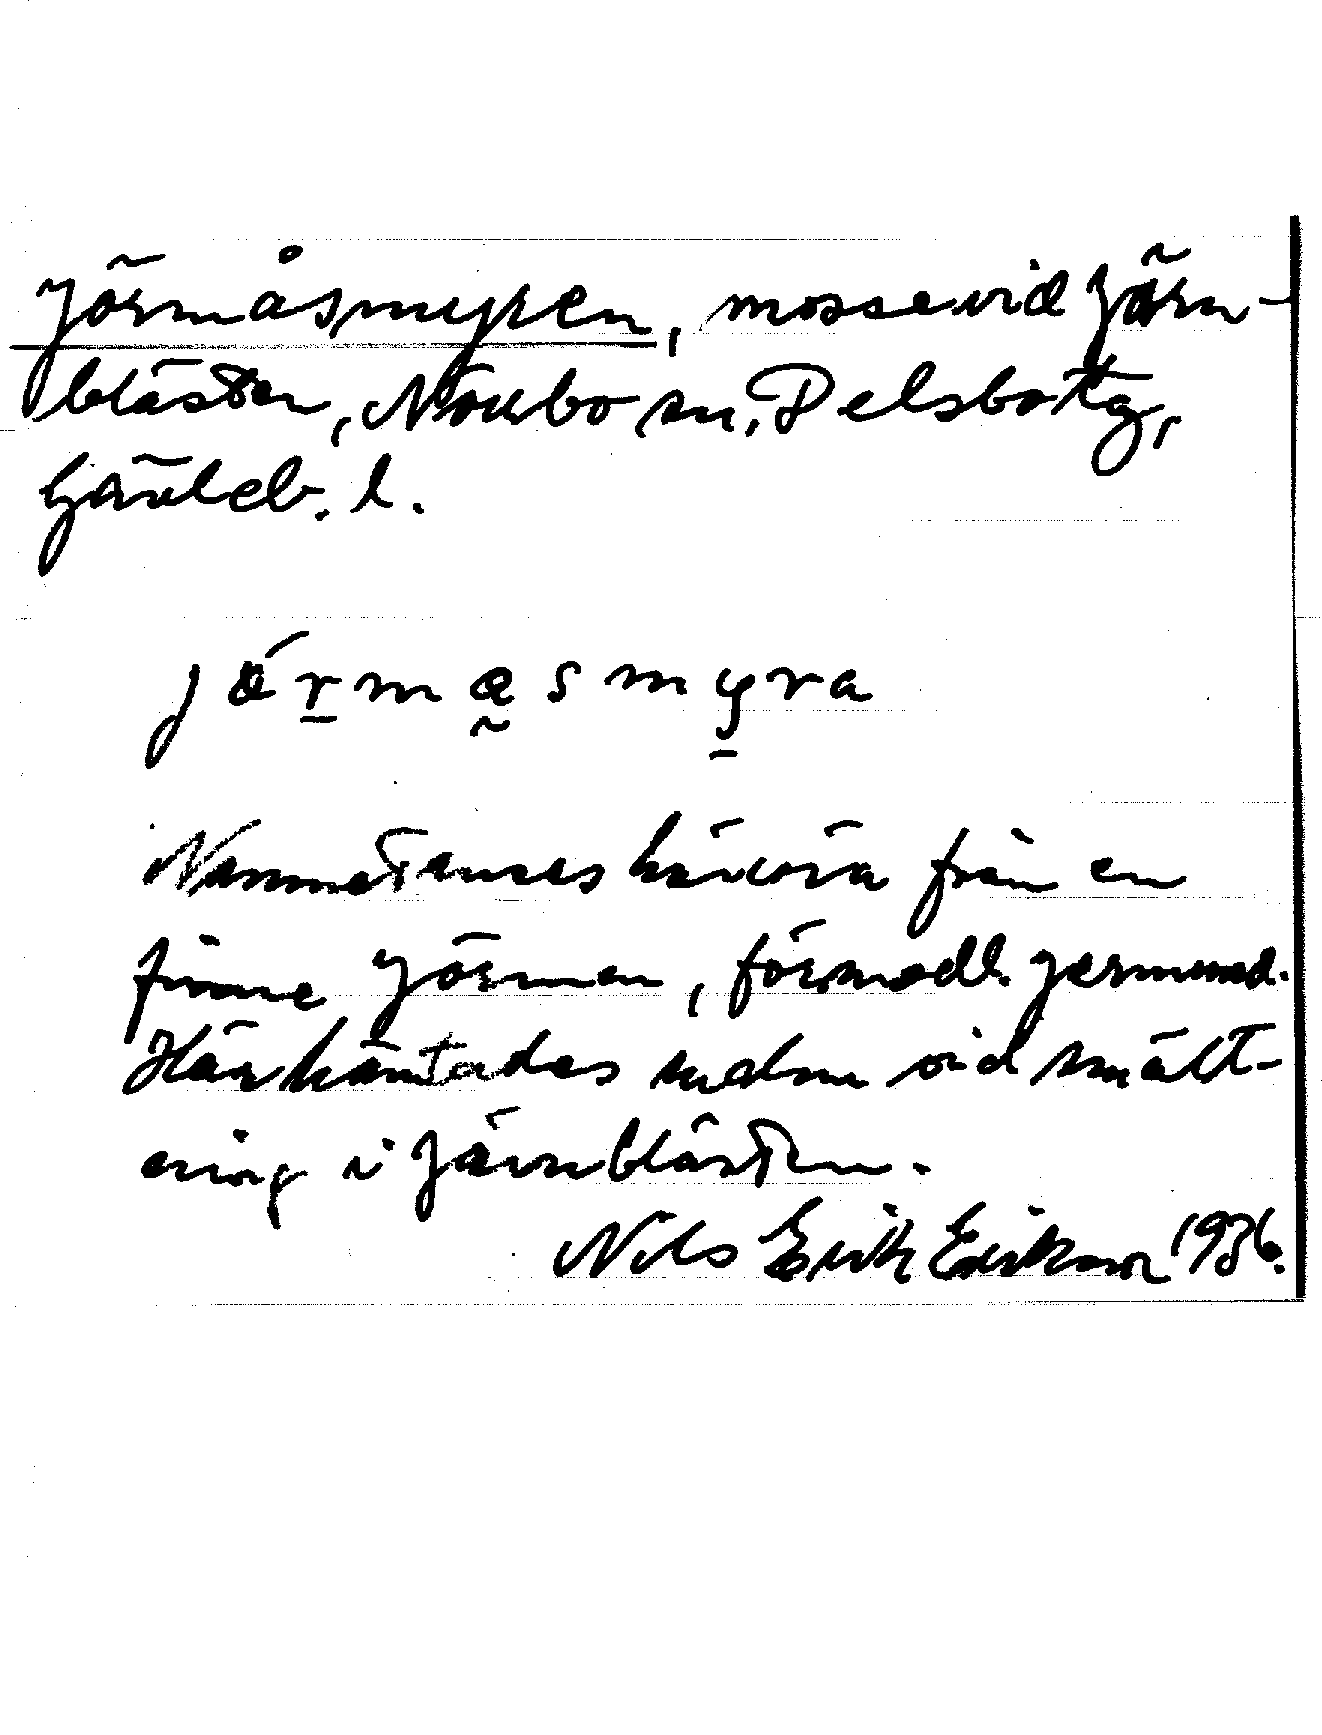 Jörmåsmyren, mosse vid Järn-
blästen, Norrbo sn, Delsbo tg,
Gävleb. l.
jörməsmyra
Namnet anses härröra från en
finne Jörmen, förmodl. Jermund.
Här hämtades malm vid smält-
ning i Järnblästen.
Nils Erik Eriksson 1936.